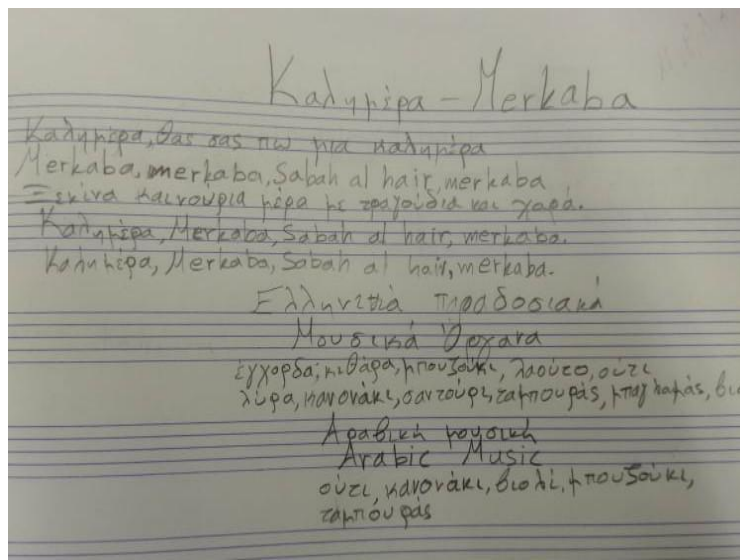 Καλημέρα - Merkaba
Καλημέρα, θας σας πω μια καλημέρα
Merkaba, merkaba, Sabah al hair, merkaba
Ξεκίνα καινούρια μέρα με τραγούδια και χαρά.
Καλημέρα, Merkaba, Sabah al hair, merkaba.
Καλημέρα, Merkaba, Sabah al hair, merkaba.
Ελληνικά παραδοσιακά
Μουσικά Όργανα
έγχορδα; κιθάρα, μπουζούκι, λαούτο, ούτι
λύρα, κανονάκι, σαντούρι, ταμπουράς, μπαγλαμάς, βιο
Αραβική μουσική
Arabic Music
ούτι, κανονάκι, βιολί, μπουζούκι,
ταμπουράς